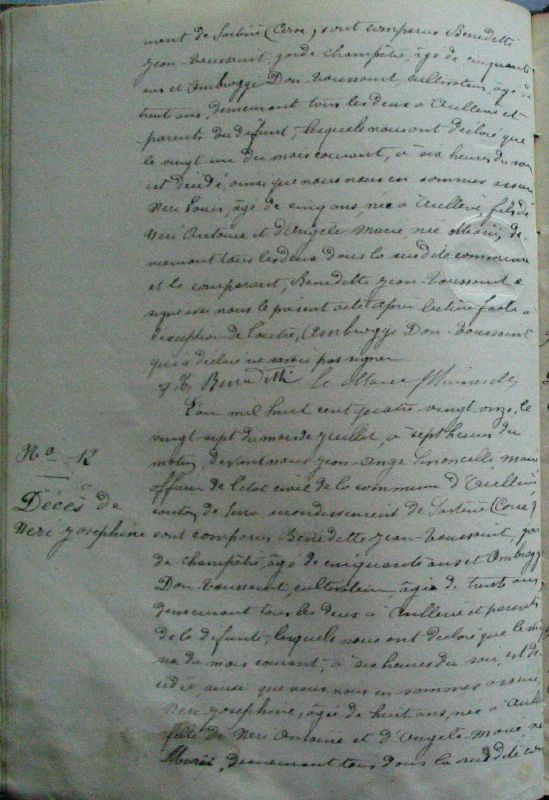 ment de Sartène (Corse) sont comparus Benedetti
Jean Toussaint, garde champêtre, âgé de cinquante
ans et Ambroggi Don Toussaint cultivateur, âgé de
trente ans, demeurant tous les deux à Aullene et
parents du défunt, lesquels nous ont déclaré que
le vingt un du mois courant, à six heures du soir
est décédé, ainsi que nous nous en sommes assuré
Neri Louis, âgé de cinq ans, né à Aullene, fils de
Neri Antoine et d'Angèle Marie née, de-
meurant tous les deux dans la susdite commune
et le comparant, Benedetti Jean-Toussaint a
signé avec nous le présent acte après lecture faite à
l'exception de l'autre, Ambroggi Don Toussaint
qui a déclaré ne savoir pas signer
J. T. Benedetti le Maire
L'an mil huit cent quatre-vingt onze, le
vingt sept du mois de Juillet, à sept heures du
No 12
matin, devant nous Jean Ange Simoncelli, maire
officier de l'état civil de la commune d'Aullene
Décès de
canton de Serra arrondissement de Sartène (Corse)
Neri Josephine
sont comparus Benedetti Jean-Toussaint, gar-
de champêtre, âgé de cinquante ans et Ambroggi
Don Toussaint, cultivateur, âgé de trente ans,
demeurant tous les deux à Aullene et parents
de la défunte, lesquels nous ont déclaré que le
du mois courant, à six heures du soir, est dé-
cédée, ainsi que nous nous en sommes assuré,
Neri Josephine, âgée de huit ans, née à Aullene
fille de Neri Antoine et d'Angèle-Marie, née
demeurant tous dans la susdite com